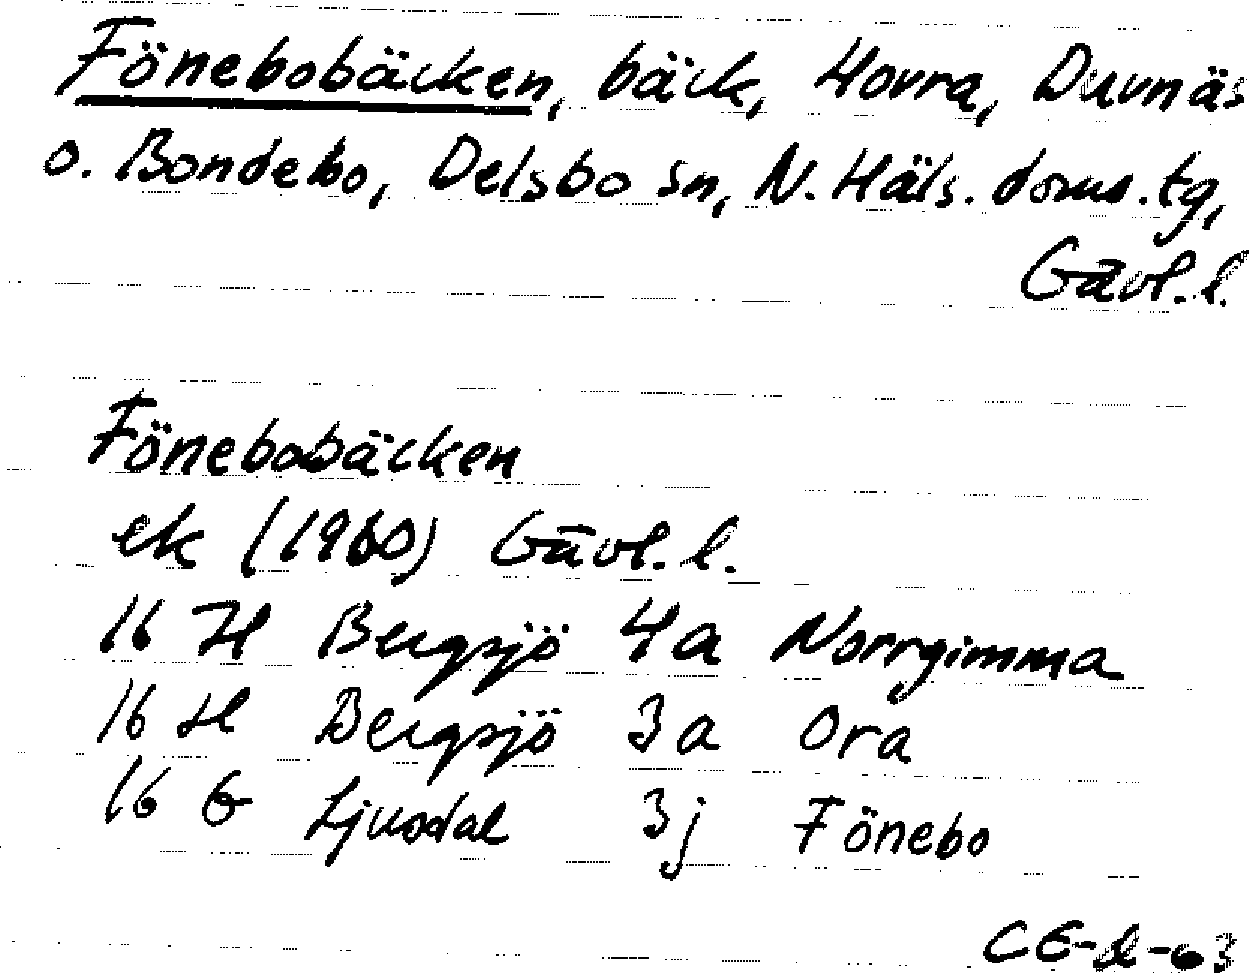 Fönebobäcken, bäck, Hovra, Duvnäs
o. Bondebo, Delsbo sn, N. Häls. doms. tg,
Gävl. l.
Fönebobäcken
ek (1960) Gävl. l.
16 H Bergsjö 4a Norrgimma
16 H Bergsjö 3a Ora
16 G Ljusdal 3j Fönebo